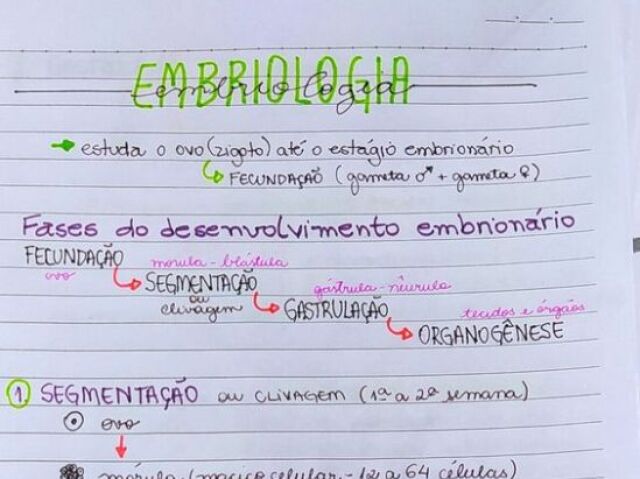 EMBRIOLOGIA
embriologia
→ estuda o ovo (zigoto) até o estágio embrionário
FECUNDAÇÃO (gameta ♂ + gameta ♀)
Fases do desenvolvimento embrionário
FECUNDAÇÃO mórula - blástula
ovo SEGMENTAÇÃO gástrula - nêurula
ou
clivagem GASTRULAÇÃO tecidos e órgãos
ORGANOGÊNESE
1. SEGMENTAÇÃO ou CLIVAGEM (1ª a 2ª semana)
ovo
mórula (maciço celular - 12 a 64 células)